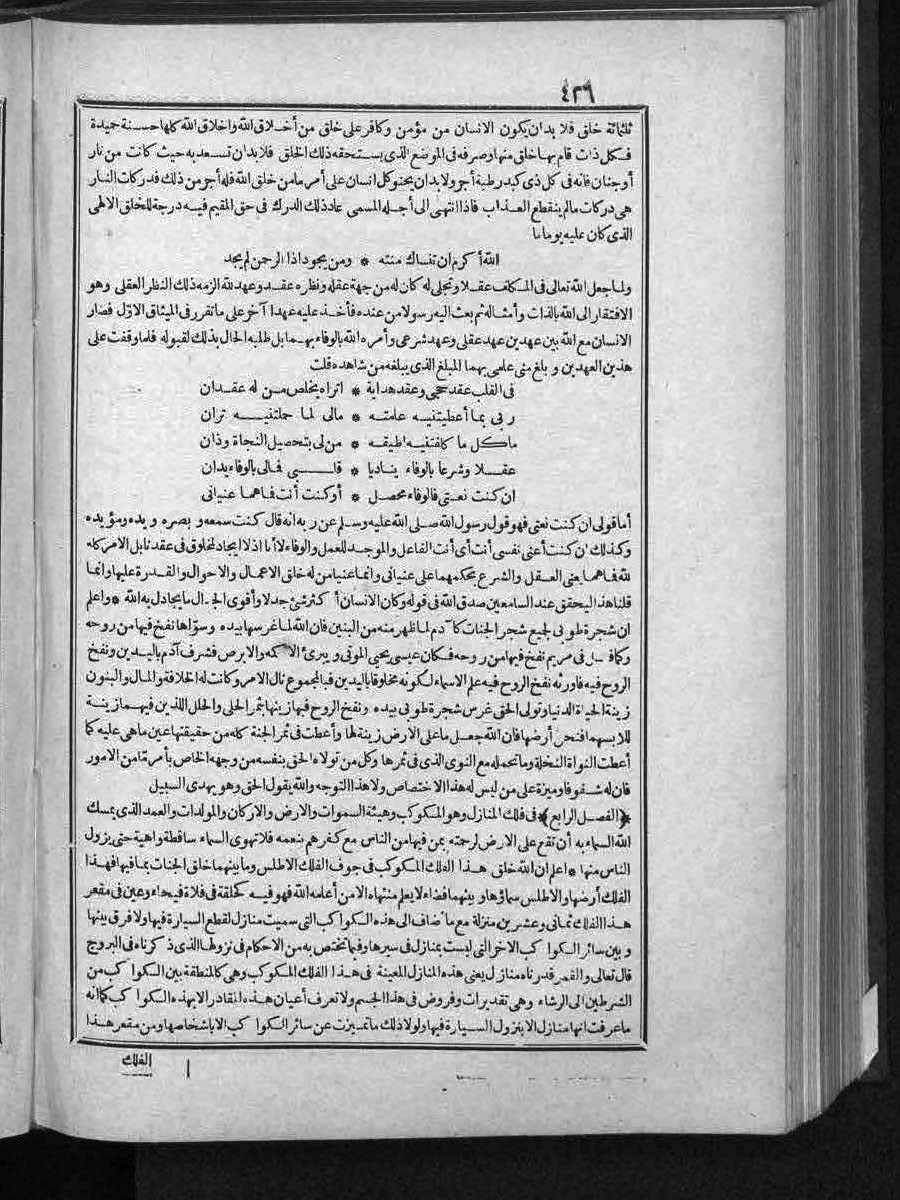 ٤٣٦
ثلثمائة خلق فلا بد ان يكون الانسان من مؤمن وكافر على خلق من أخلاق الله وأخلاق الله كلها حسنة حميدة
فكل ذات قام بها خلق منها وصرفه فى الموضع الذى يستحقه ذلك الخلق فلا بد ان تسعد به حيث كانت من نار
أو جنان فانه فى كل ذى كبد رطبة أجر ولا بد ان يحنو كل انسان على أمر ما من خلق الله فله أجر من ذلك فدركات النار
هى دركات ما لم ينقطع العذاب فاذا انتهى الى أجله المسمى عاد ذلك الدرك فى حق المقيم فيه درجة للخلق الالهى
الذى كان عليه يوما ما
الله أكرم ان تنساك منته * ومن يجود اذا الرحمن لم يجد
ولما جعل الله تعالى فى المكلف عقلا وتجلى له كان له من جهة عقله ونظره عقد وعهد لله ألزمه ذلك النظر العقلى وهو
الافتقار الى الله بالذات وأمثاله ثم بعث اليه رسولا من عنده فأخذ عليه عهدا آخر على ما تقرر فى الميثاق الاول فصار
الانسان مع الله بين عهدين عهد عقلى وعهد شرعى وأمره الله بالوفاء بهما بل طلبه الحال بذلك لقبوله فلما وقفت على
هذين العهدين وبلغ منى علمى بهما المبلغ الذى يبلغه من شاهده قلت
فى القلب عقد حجى وعقد هداية * اتراه يخلص من له عقدان
ربى بما أعطيتنيه علمته * مالى لما حملتنيه تران
ما كل ما كلفتنيه اطيقه * من لى بتحصيل النجاة وذان
عقلا وشرعا بالوفاء يناديا * قلبى فمالى بالوفاء يدان
ان كنت نعتى فالوفاء محصل * أو كنت أنت فما هما عنيانى
أما قولى ان كنت نعتى فهو قول رسول الله صلى الله عليه وسلم عن ربه انه قال كنت سمعه وبصره ويده ومؤيده
وكذلك ان كنت أعنى نفسى أنت أى أنت الفاعل والموجد للعمل والوفاء لا أنا اذ لا ايجاد لمخلوق فى عقدنا بل الامر كله
لله فما هما يعنى العقل والشرع بحكمهما على عنيانى وانما عنيا من له خلق الاعمال والاحوال والقدرة عليها وانما
قلنا هذا ليتحقق عند السامعين صدق الله فى قوله وكان الانسان أكثر شئ جدلا وأقوى الجدال ما يجادل به الله * واعلم
ان شجرة طوبى لجميع شجر الجنات كآدم لما ظهر منه من البنين فان الله لما غرسها بيده وسواها نفخ فيها من روحه
وكما فعل فى مريم نفخ فيها من روحه فكان عيسى يحيى الموتى ويبرئ الاكمه والابرص فشرف آدم باليدين ونفخ
الروح فيه فاورثه نفخ الروح فيه علم الاسماء لكونه مخلوقا باليدين فبالمجموع نال الامر وكانت له الخلافة والمال والبنون
زينة الحياة الدنيا وتولى الحق غرس شجرة طوبى بيده ونفخ الروح فيها زينها بثمر الحلى والحلل اللذين فيهما زينة
للابسهما فنحن أرضها فان الله جعل ما على الارض زينة لها وأعطت فى ثمر الجنة كله من حقيقتها عين ما هى عليه كما
أعطت النواة النخلة وما تحمله مع النوى الذى فى ثمرها وكل من تولاه الحق بنفسه من وجهه الخاص بأمر ما من الامور
فان له شفوفا وميزة على من ليس له هذا الاختصاص ولا هذا التوجه والله يقول الحق وهو يهدى السبيل
﴿الفصل الرابع﴾ فى فلك المنازل وهو المكوكب وهيئة السموات والارض والاركان والمولدات والعمد الذى يمسك
الله السماء به أن تقع على الارض لرحمته بمن فيها من الناس مع كفرهم بنعمه فلا تهوى السماء ساقطة واهية حتى يزول
الناس منها * اعلم ان الله خلق هذا الفلك المكوكب فى جوف الفلك الاطلس وما بينهما خلق الجنات بما فيها فهذا
الفلك أرضها والاطلس سماؤها وبينهما فضاء لا يعلم منتهاه الا من أعلمه الله فهو فيه كحلقة فى فلاة فيحاء وعين فى مقعر
هذا الفلك ثمانى وعشرين منزلة مع ما أضاف الى هذه الكواكب التى سميت منازل لقطع السيارة فيها ولا فرق بينها
وبين سائر الكواكب الاخر التى ليست بمنازل فى سيرها وفيما تختص به من الاحكام فى نزولها الذى ذكرناه فى البروج
قال تعالى والقمر قدرناه منازل يعنى هذه المنازل المعينة فى هذا الفلك المكوكب وهى كالمنطقة بين الكواكب من
الشرطين الى الرشاء وهى تقديرات وفروض فى هذا الجسم ولا تعرف أعيان هذه المقادر الا بهذه الكواكب كما انه
ما عرفت انها منازل الا بنزول السيارة فيها ولولا ذلك ما تميزت عن سائر الكواكب الا باشخاصها ومن مقعر هذا
الفلك